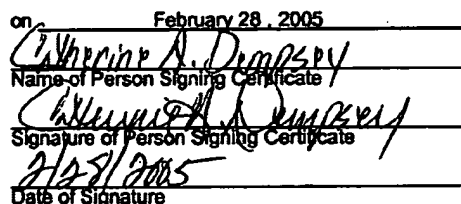 on February 28 , 2005
Catherine A. Dempsey
Name of Person Signing Certificate
Catherine A. Dempsey
Signature of Person Signing Certificate
2/28/2005
Date of Signature